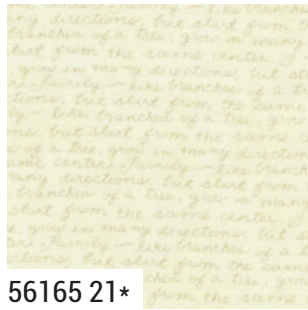 me center. Family — like branches
any directions, but start from t
branches of a tree, grow in many
start from the same center. F
, grow in many directions, but st
ter. Family — like branches of a tr
ctions, but start from the same
ly — like branches of a tree, grow
ns, but start from the same
s of a tree, grow in many direction
ame center. Family — like branch
any directions, but start from
branches of a tree, grow in many
start from the same center.
e, grow in many directions, but s
ter. Family — like branches of a t
ections, but start from the same
ches of a tree, grow
from the same
56165 21*